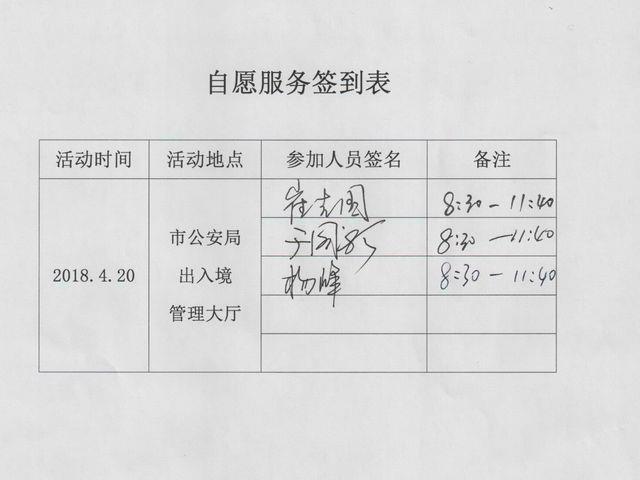 自愿服务签到表
活动时间 活动地点 参加人员签名 备注
2018.4.20 市公安局 出入境 管理大厅
崔志国 8:30-11:40
8:30-11:40
杨峰 8:30-11:40